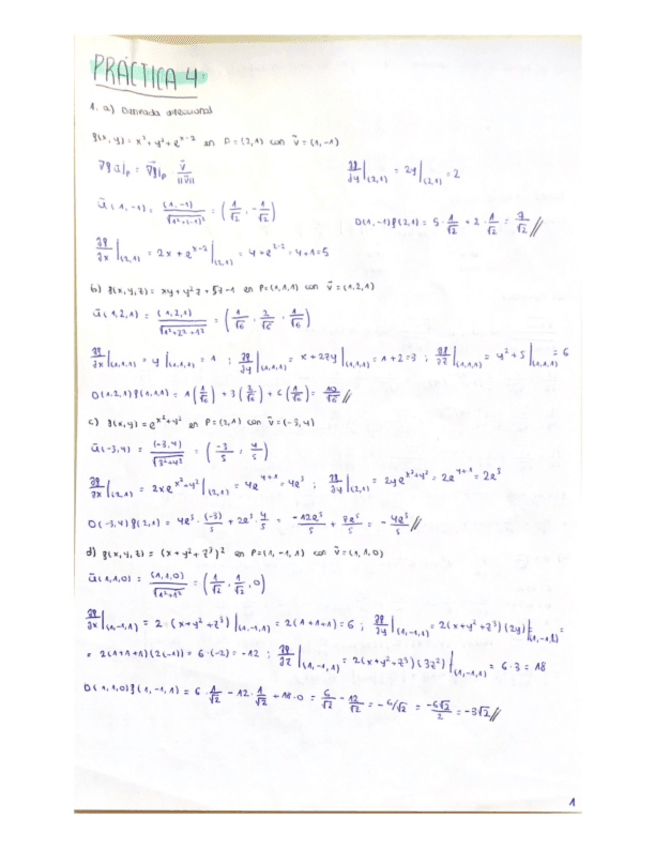 PRÁCTICA 4
1. a) Derivada direccional
f(x,y) = x² + y² + e^(x-2) en P=(2,1) con v̄=(1,-1)
∇f ū|ₚ = ∇f|ₚ · v̄/||v̄||
∂f/∂y|(2,1) = 2y|(2,1) = 2
ū(1,-1) = (1,-1)/√(1²+(-1)²) = (1/√2, -1/√2)
D(1,-1)f(2,1) = 5·1/√2 + 2·1/√2 = 7/√2 //
∂f/∂x|(2,1) = 2x + e^(x-2)|(2,1) = 4 + e^(2-2) = 4+1 = 5
b) f(x,y,z) = xy + y²z + 5z - 1 en P=(1,1,1) con v̄=(1,2,1)
ū(1,2,1) = (1,2,1)/√(1²+2²+1²) = (1/√6, 2/√6, 1/√6)
∂f/∂x|(1,1,1) = y|(1,1,1) = 1 ; ∂f/∂y|(1,1,1) = x + 2zy|(1,1,1) = 1+2=3 ; ∂f/∂z|(1,1,1) = y²+5|(1,1,1) = 6
D(1,2,1)f(1,1,1) = 1(1/√6) + 3(2/√6) + 6(1/√6) = 13/√6 //
c) f(x,y) = e^(x²+y²) en P=(2,1) con v̄=(-3,4)
ū(-3,4) = (-3,4)/√(3²+4²) = (-3/5, 4/5)
∂f/∂x|(2,1) = 2xe^(x²+y²)|(2,1) = 4e^(4+1) = 4e⁵ ; ∂f/∂y|(2,1) = 2ye^(x²+y²) = 2e^(4+1) = 2e⁵
D(-3,4)f(2,1) = 4e⁵·(-3)/5 + 2e⁵·4/5 = -12e⁵/5 + 8e⁵/5 = -4e⁵/5 //
d) f(x,y,z) = (x+y²+z³)² en P=(1,-1,1) con v̄=(1,1,0)
ū(1,1,0) = (1,1,0)/√(1²+1²) = (1/√2, 1/√2, 0)
∂f/∂x|(1,-1,1) = 2·(x+y²+z³)|(1,-1,1) = 2(1+1+1) = 6 ; ∂f/∂y|(1,-1,1) = 2(x+y²+z³)(2y)|(1,-1,1) =
= 2(1+1+1)(2(-1)) = 6·(-2) = -12 ; ∂f/∂z|(1,-1,1) = 2(x+y²+z³)(3z²)|(1,-1,1) = 6·3 = 18
D(1,1,0)f(1,-1,1) = 6·1/√2 - 12·1/√2 + 18·0 = 6/√2 - 12/√2 = -6/√2 = -6√2/2 = -3√2 //
1